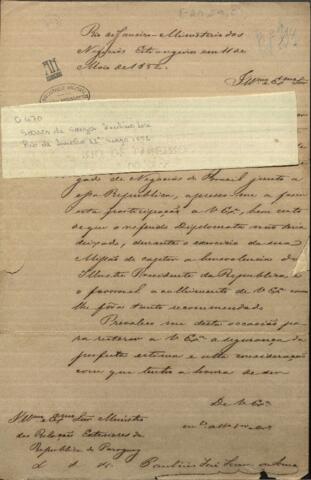 Rio de Janeiro - Ministerio dos
Negocios Estrangeiros em 11 de
Maio de 1852
Illmo e Exmo Snr
Soares de Souza Paulino José
Rio de Janeiro
gado de Negocios do Brasil junto a
essa Republica, apresso-me a fazer
esta participação a V Exa, bem certo
de que o referido Diplomata não terá
deixado, durante o exercicio da sua
Missão de captar a benevolencia do
Illustre Presidente da Republica, e
o favoravel acolhimento de V Exa com
lhe fôra tanto recommendado.
Prevaleço me desta occasião pa
ra reiterar a V Exa a segurança da
perfeita estima e
consideração
com que tenho a honra de ser
De V Exa
Illmo e Exmo Snr Ministro
das Relações Exteriores da
Republica do Paraguay
Paulino José Soares de Souza